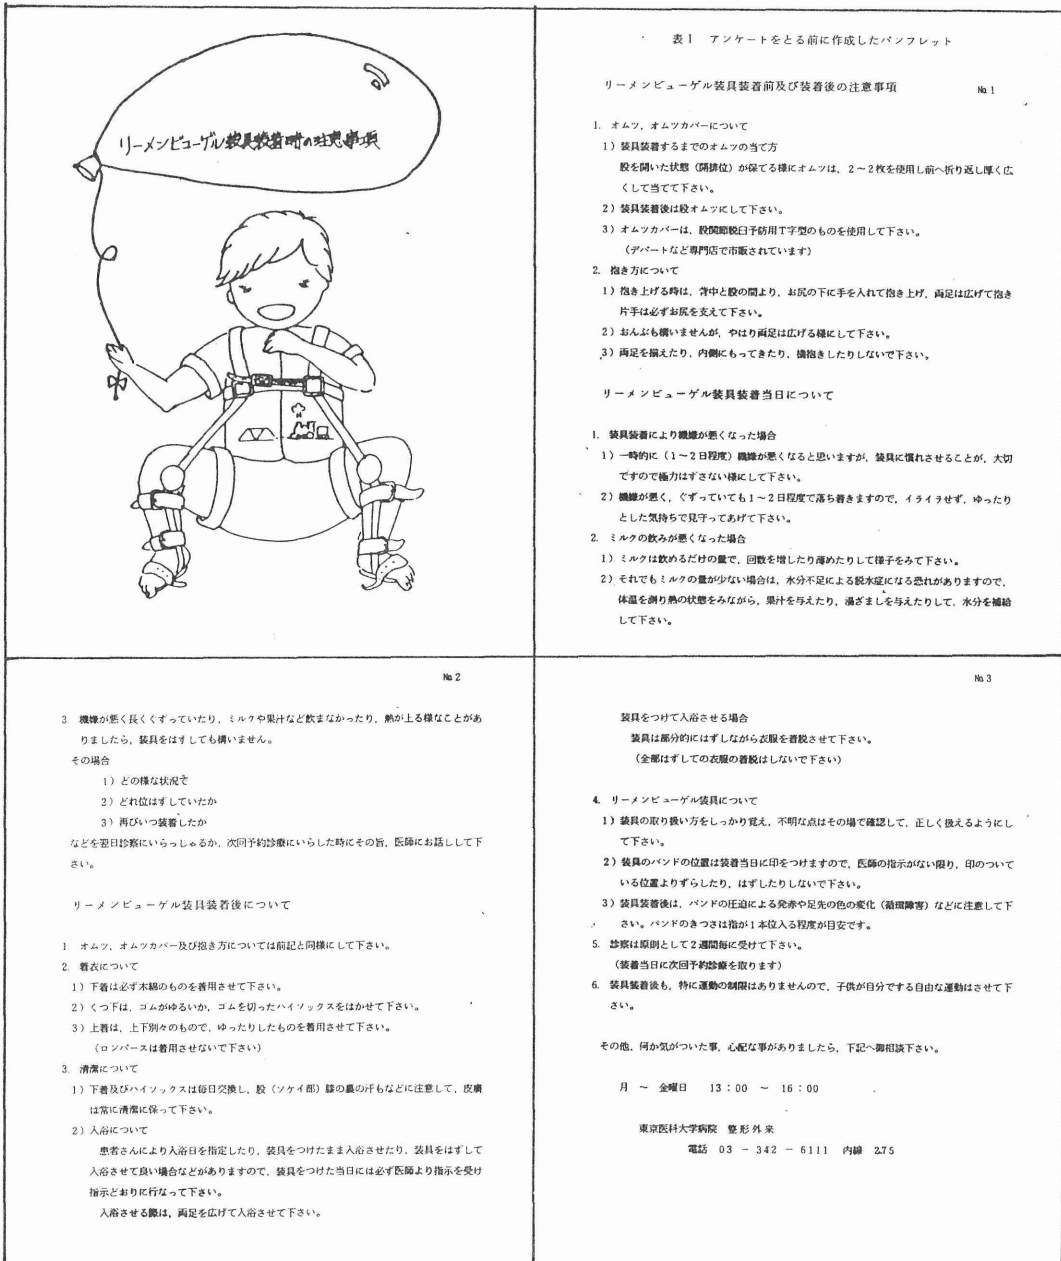 リーメンビューゲル装具装着時の注意事項
表Ⅰ アンケートをとる前に作成したパンフレット
リーメンビューゲル装具装着前及び装着後の注意事項 №1
1. オムツ,オムツカバーについて
1)装具装着するまでのオムツの当て方
股を開いた状態(開排位)が保てる様にオムツは,2〜2枚を使用し前へ折り返し厚く広
くして当てて下さい。
2)装具装着後は股オムツにして下さい。
3)オムツカバーは,股関節脱臼予防用T字型のものを使用して下さい。
(デパートなど専門店で市販されています)
2. 抱き方について
1)抱き上げる時は,背中と股の間より,お尻の下に手を入れて抱き上げ,両足は広げて抱き
片手は必ずお尻を支えて下さい。
2)おんぶも構いませんが,やはり両足は広げる様にして下さい。
3)両足を揃えたり,内側にもってきたり,横抱きしたりしないで下さい。
リーメンビューゲル装具装着当日について
1. 装具装着により機嫌が悪くなった場合
1)一時的に(1〜2日程度)機嫌が悪くなると思いますが,装具に慣れさせることが,大切
ですので極力はずさない様にして下さい。
2)機嫌が悪く,ぐずっていても1〜2日程度で落ち着きますので,イライラせず,ゆったり
とした気持ちで見守ってあげて下さい。
2. ミルクの飲みが悪くなった場合
1)ミルクは飲めるだけの量で,回数を増したり薄めたりして様子をみて下さい。
2)それでもミルクの量が少ない場合は,水分不足による脱水症になる恐れがありますので,
体温を測り熱の状態をみながら,果汁を与えたり,湯ざましを与えたりして,水分を補給
して下さい。
№2
3 機嫌が悪く長くぐずっていたり,ミルクや果汁など飲まなかったり,熱が上る様なことがあ
りましたら,装具をはずしても構いません。
その場合
1)どの様な状況で
2)どれ位はずしていたか
3)再びいつ装着したか
などを翌日診察にいらっしゃるか,次回予約診療にいらした時にその旨,医師にお話しして下
さい。
リーメンビューゲル装具装着後について
1 オムツ,オムツカバー及び抱き方については前記と同様にして下さい。
2. 着衣について
1)下着は必ず木綿のものを着用させて下さい。
2)くつ下は,ゴムがゆるいか,ゴムを切ったハイソックスをはかせて下さい。
3)上着は,上下別々のもので,ゆったりしたものを着用させて下さい。
(ロンパースは着用させないで下さい)
3. 清潔について
1)下着及びハイソックスは毎日交換し,股(ソケイ部)膝の裏の汗もなどに注意して,皮膚
は常に清潔に保って下さい。
2)入浴について
患者さんにより入浴日を指定したり,装具をつけたまま入浴させたり,装具をはずして
入浴させて良い場合などがありますので,装具をつけた当日には必ず医師より指示を受け
指示どおりに行なって下さい。
入浴させる際は,両足を広げて入浴させて下さい。
№3
装具をつけて入浴させる場合
装具は部分的にはずしながら衣服を着脱させて下さい。
(全部はずしての衣服の着脱はしないで下さい)
4. リーメンビューゲル装具について
1)装具の取り扱い方をしっかり覚え,不明な点はその場で確認して,正しく扱えるようにし
て下さい。
2)装具のバンドの位置は装着当日に印をつけますので,医師の指示がない限り,印のついて
いる位置よりずらしたり,はずしたりしないで下さい。
3)装具装着後は,バンドの圧迫による発赤や足先の色の変化(循環障害)などに注意して下
さい。バンドのきつさは指が1本位入る程度が目安です。
5. 診察は原則として2週間毎に受けて下さい。
(装着当日に次回予約診療を取ります)
6. 装具装着後も,特に運動の制限はありませんので,子供が自分でする自由な運動はさせて下
さい。
その他,何か気がついた事,心配な事がありましたら,下記へ御相談下さい。
月 〜 金曜日 13:00 〜 16:00
東京医科大学病院 整形外来
電話 03 − 342 − 6111 内線 275